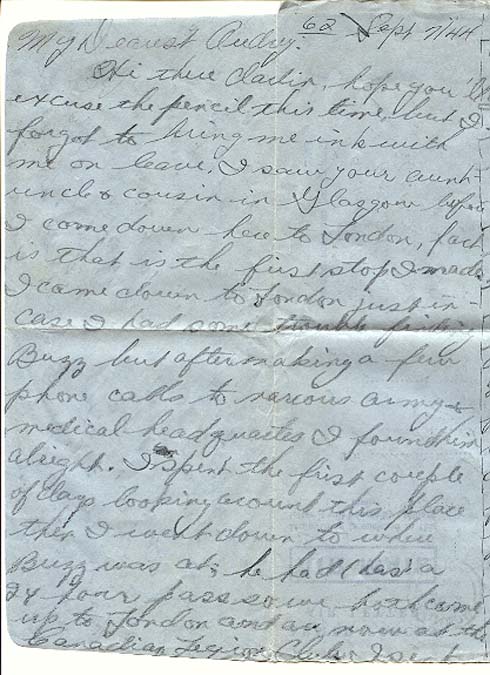 62 Sept 7/44
My Dearest Audry.
Hi thue darlin, hope you'll
excuse the pencil this time, but I
forgot to bring me ink with
me on leave. I saw your aunt
uncle & cousin in Glasgow before
I come down here to London, fact
is that is the first stop I made
I came down to London just in-
case I had some trouble finding
Buzz but after making a few
phone calls to various army &
medical headquaites I found him
alright. I spent the first couple
of days looking around this place
then I went down to where
Buzz was at; he had (has) a
24 hour pass so we both come
up to London and are now at the
Canadian Legion Club. I